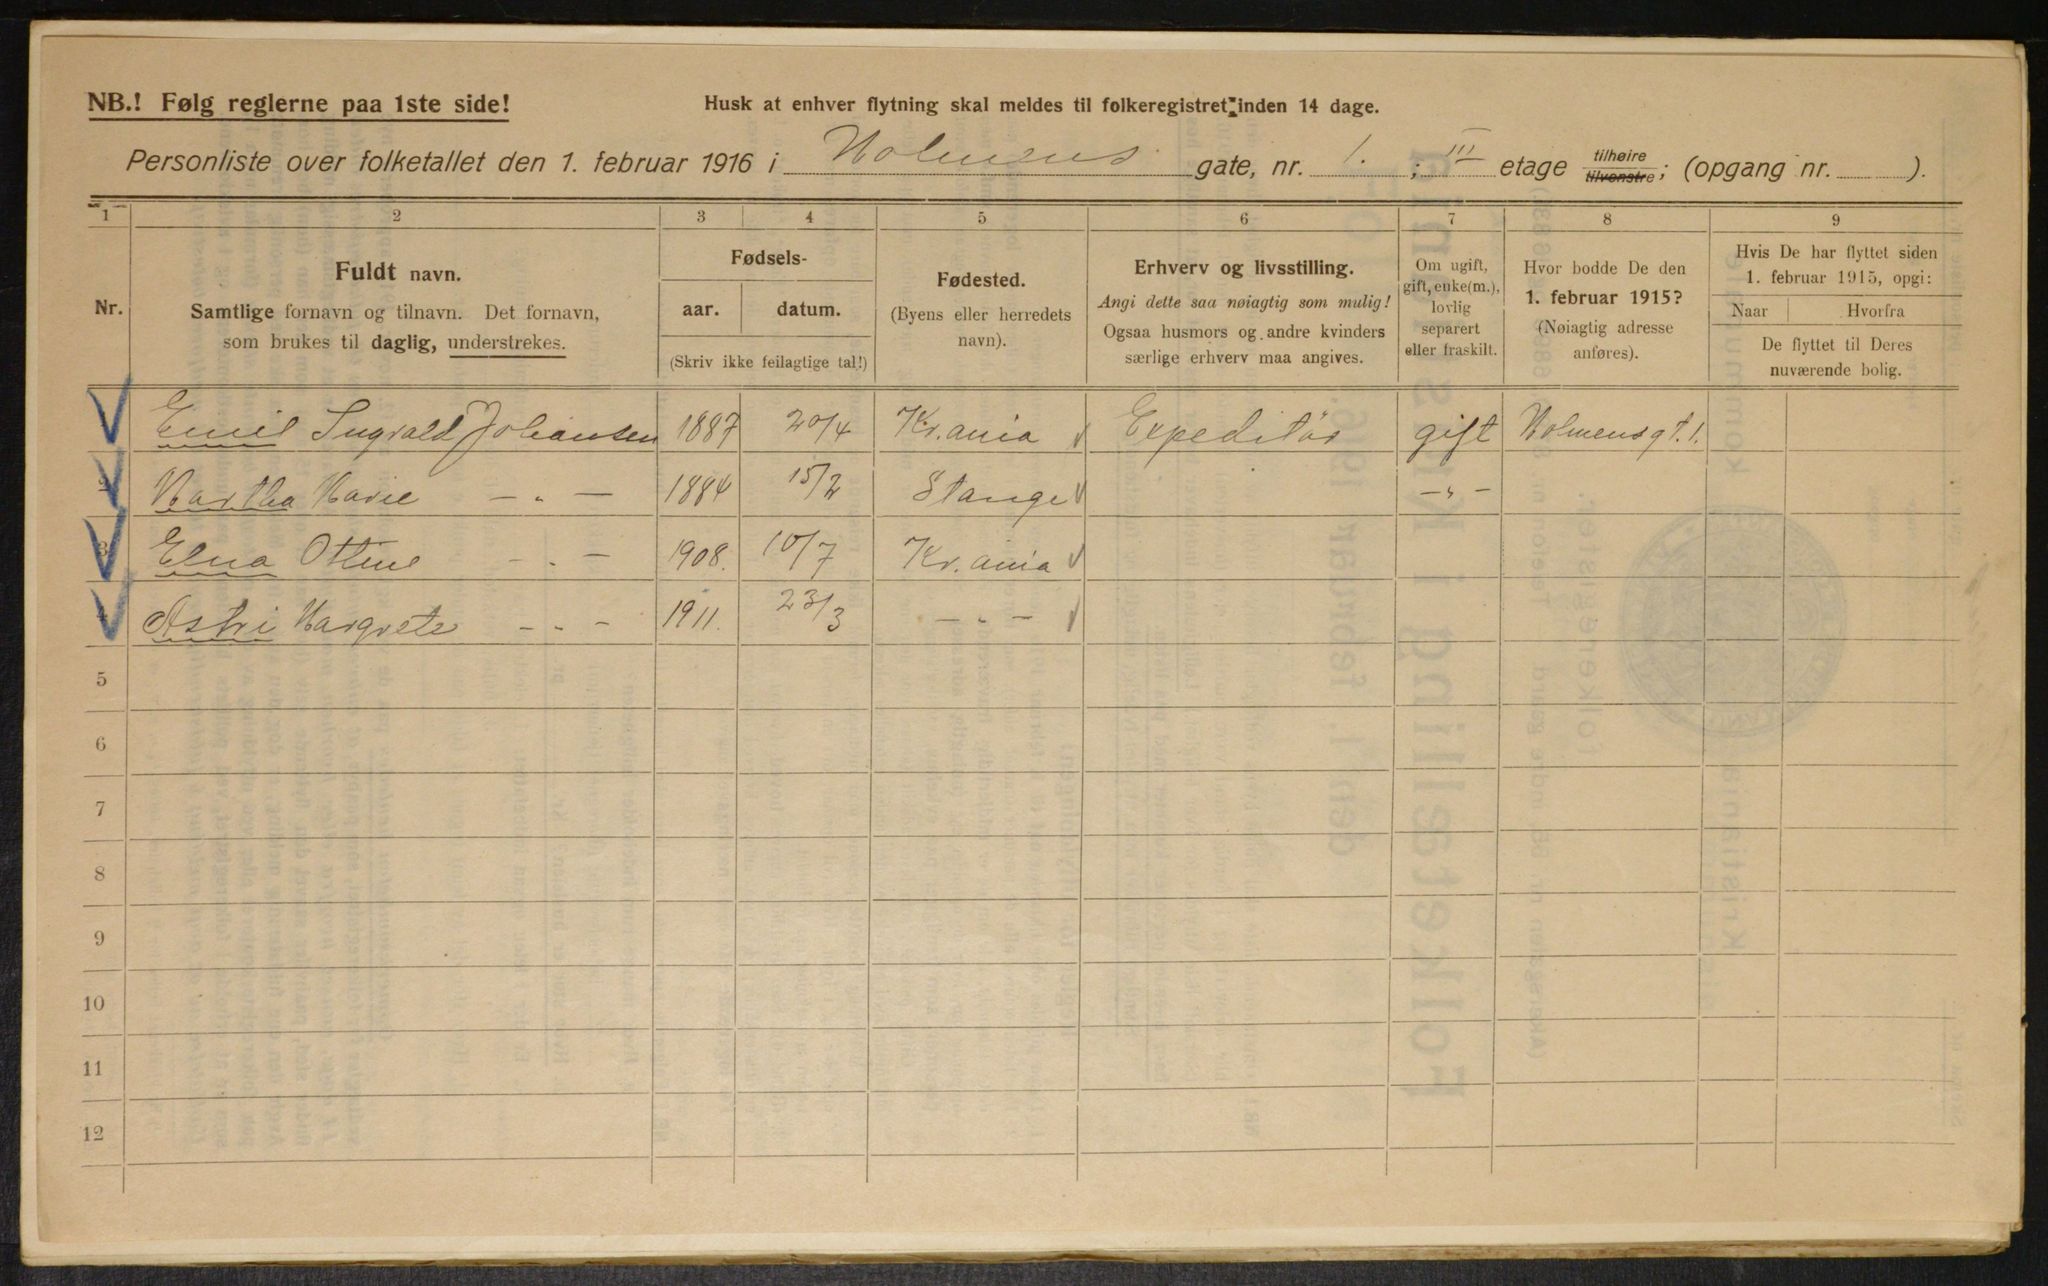 NB.! Følg reglerne paa 1ste side!
Husk at enhver flytning skal meldes til folkeregistret inden 14 dage.
Personliste over folketallet den 1. februar 1916 i Holmens gate, nr. 1. ; III etage tilhøire tilvenstre; (opgang nr. ).
1 2 3 4 5 6 7 8 9
Nr.
Fuldt navn.
Samtlige fornavn og tilnavn. Det fornavn,
som brukes til daglig, understrekes.
Fødsels-
aar. datum.
(Skriv ikke feilagtige tal!)
Fødested.
(Byens eller herredets
navn).
Erhverv og livsstilling.
Angi dette saa nøiagtig som mulig!
Ogsaa husmors og andre kvinders
særlige erhverv maa angives.
Om ugift,
gift, enke(m.),
lovlig
separert
eller fraskilt.
Hvor bodde De den
1. februar 1915?
(Nøiagtig adresse
anføres).
Hvis De har flyttet siden
1. februar 1915, opgi:
Naar Hvorfra
De flyttet til Deres
nuværende bolig.
1 Emil Ingvald Johansen 1887 20/4 Kr.ania Expeditør gift Holmensgt. 1.
2 Martha Marie — " — 1884 15/2 Stange — " —
3 Elna Otline — " — 1908. 10/7 Kr.ania
4 Astri Margrete — " — 1911. 23/3 — " —
5
6
7
8
9
10
11
12